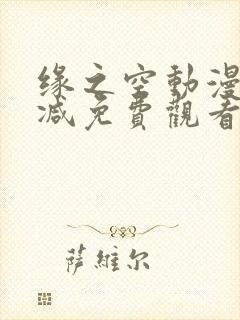 缘之空動漫
减免費觀看
萨維尔